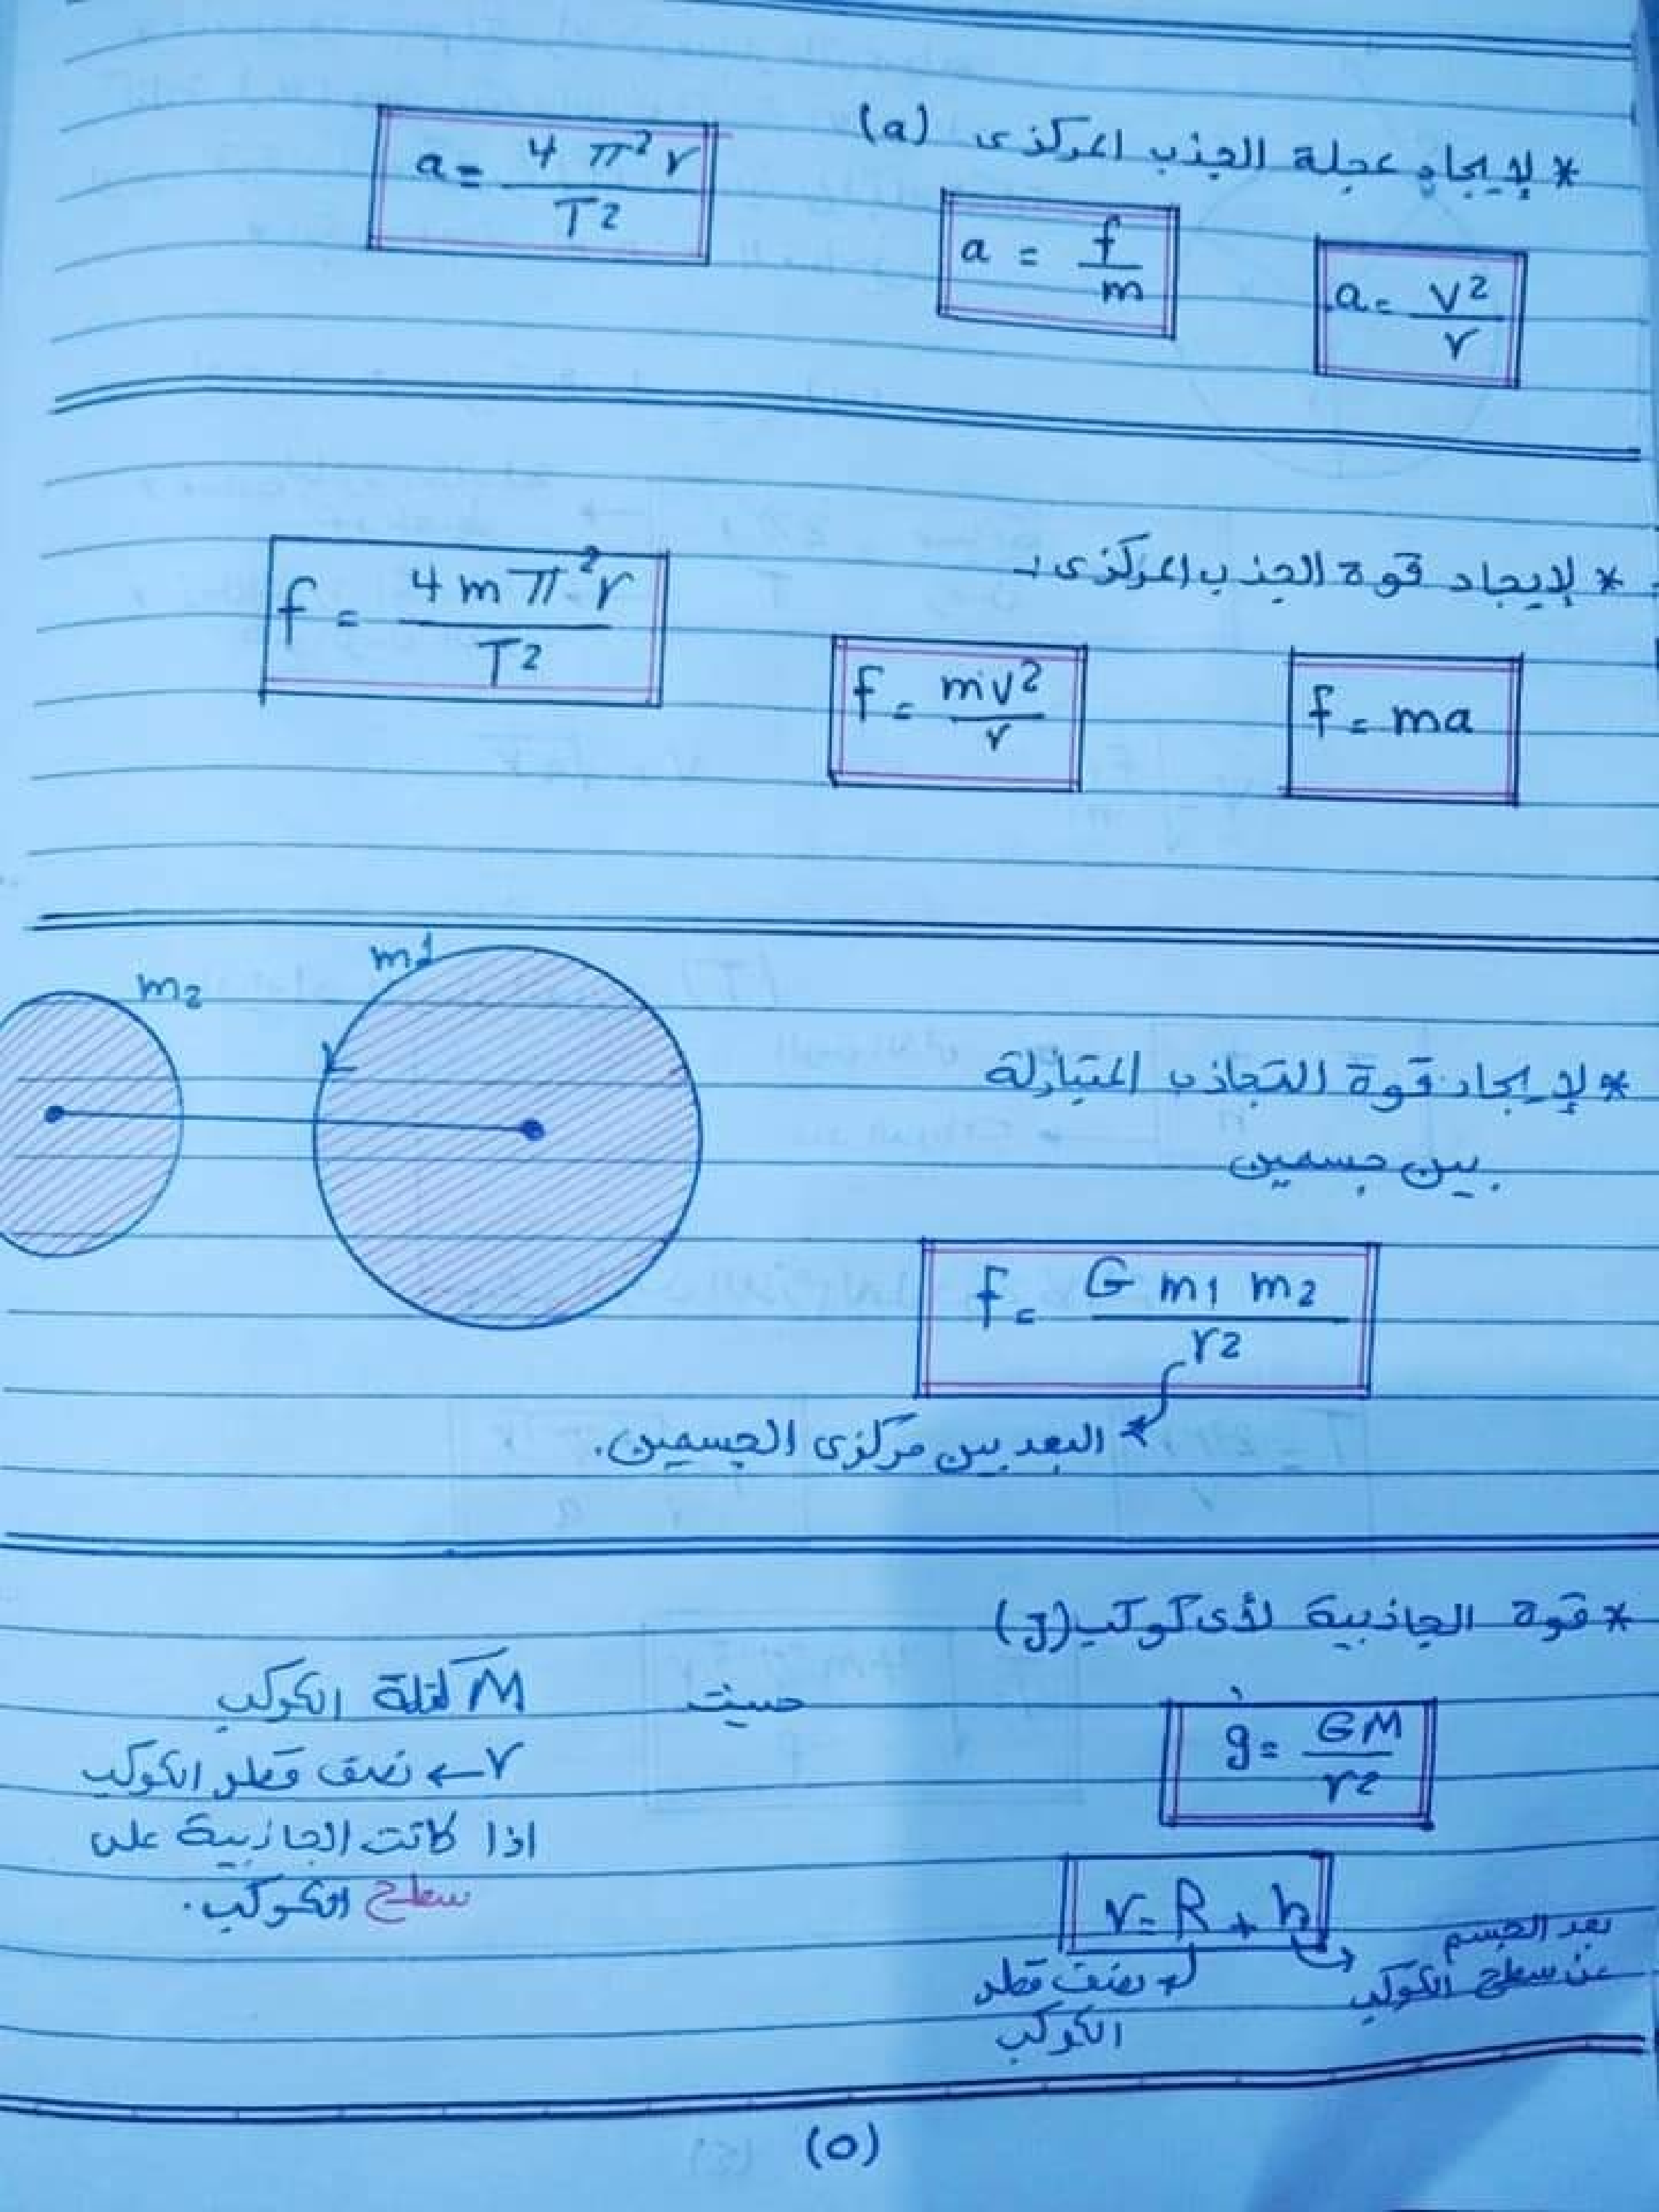 * لإيجاد عجلة الجذب المركزى (a)
a = v²/r
a = f/m
a = 4 π² r / T²
* لإيجاد قوة الجذب المركزى :
f = ma
f = mv²/r
f = 4 m π² r / T²
* لإيجاد قوة التجاذب المتبادلة
بين جسمين
m1
m2
f = G m1 m2 / r2
البعد بين مركزى الجسمين.
* قوة الجاذبية لأى كوكب (g)
g = GM / r2
حيث
M كتلة الكوكب
r ← نصف قطر الكوكب
اذا كانت الجاذبية على
سطح الكوكب.
r = R + h
بعد الجسم
عن سطح الكوكب
نصف قطر
الكوكب
(٥)